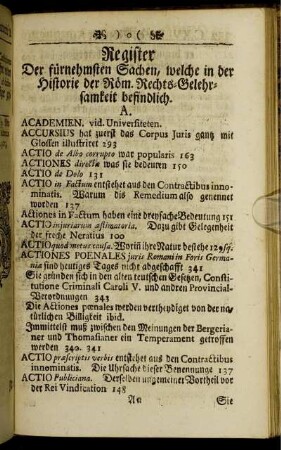 ) o (
Register
Der fürnehmsten Sachen, welche in der
Historie der Röm. Rechts-Gelehr-
samkeit befindlich.
A.
ACADEMIEN. vid. Universiteten.
ACCURSIUS hat zuerst das Corpus Juris gantz mit
Glossen illustriret 293
ACTIO de Albo corrupto war popularis 163
ACTIONES directæ was sie bedeuten 150
ACTIO de Dolo 131
ACTIO in Factum entstehet aus den Contractibus inno-
minatis. Warum dis Remedium also genennet
worden 137
Actiones in Factum haben eine dreyfache Bedeutung 151
ACTIO injuriarum æstimatoria. Dazu gibt Gelegenheit
der freche Neratius 100
ACTIO quod metus causa. Worin ihre Natur bestehe 129 sq.
ACTIONES POENALES juris Romani in Foris Germa-
nia sind heutiges Tages nicht abgeschafft 341
Sie gründen sich in den alten teutschen Gesetzen, Consti-
tutione Criminali Caroli V. und andren Provincial-
Verordnungen 342
Die Actiones pœnales werden vertheydiget von der na-
türlichen Billigkeit ibid.
Immittelst muß zwischen den Meinungen der Bergeria-
ner und Thomasianer ein Temperament getroffen
werden 340. 341
ACTIO præscriptis verbis entstehet aus den Contractibus
innominatis. Die Uhrsache dieser Benennunge 137
ACTIO Publiciana. Derselben ungemeiner Vortheil vor
der Rei Vindication 148
Sie